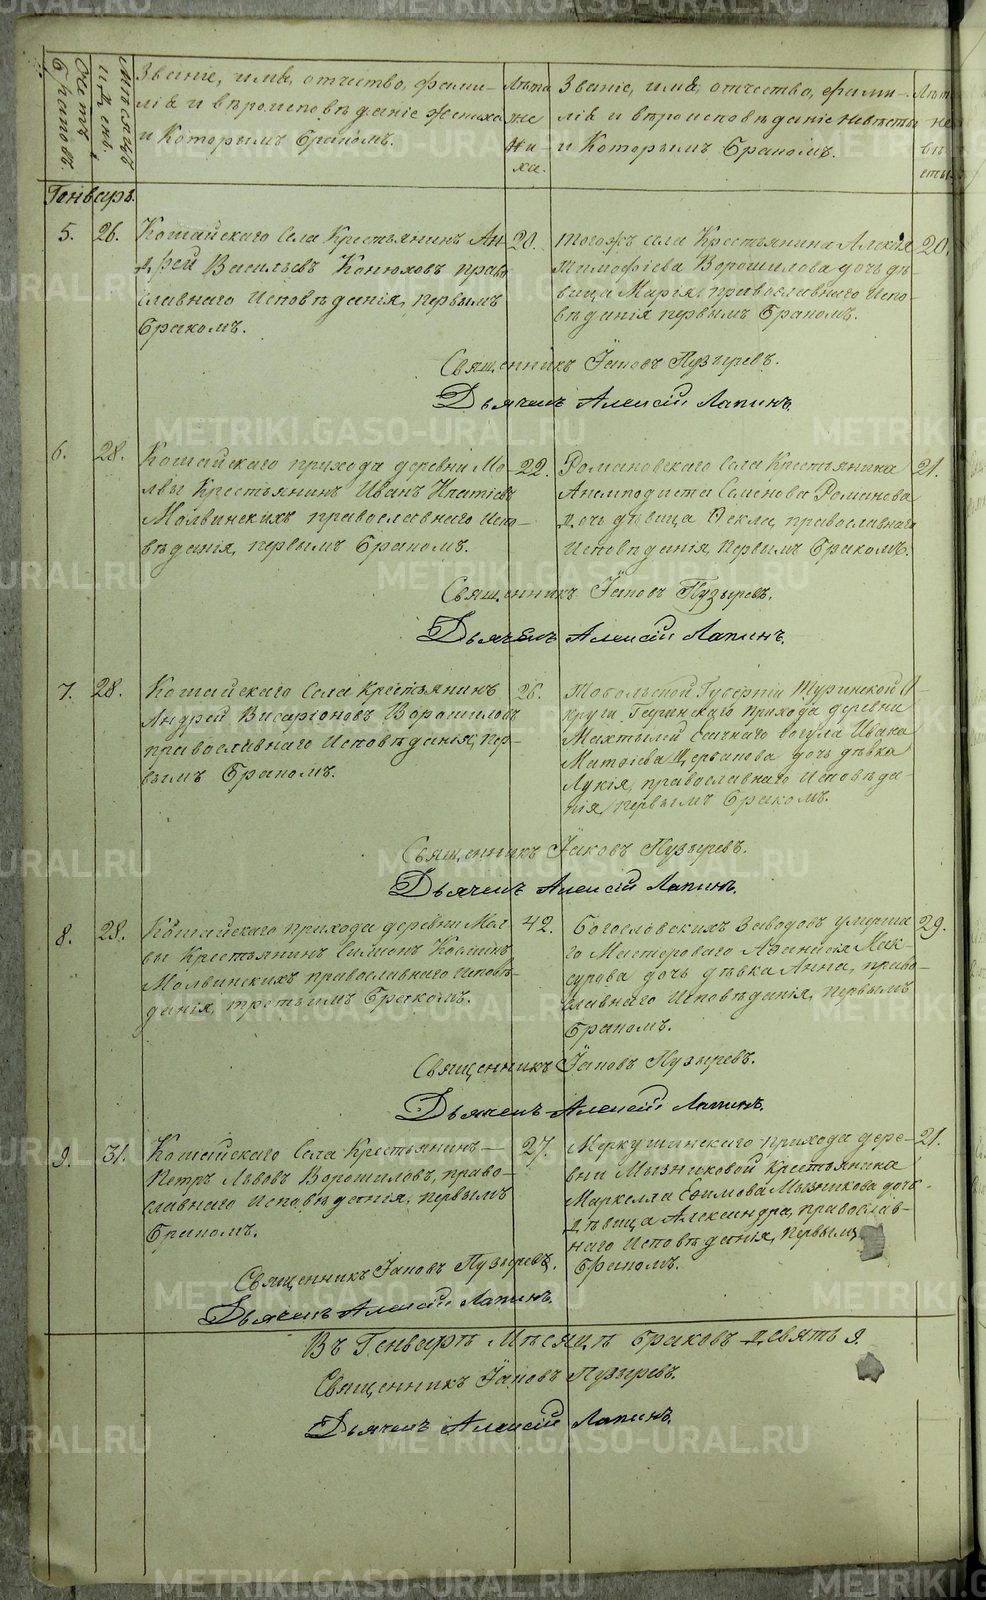 Счетъ Браковъ.
Мѣсяцъ и День.
Званіе, имя, отчество, фами-
лія и вѣроисповѣданіе жениха
и Которымъ Бракомъ.
Лѣта
же
ни-
ха.
Званіе, имя, отчество, фами-
лія и вѣроисповѣданіе невѣсты
и Которымъ Бракомъ.
Лѣта
не
вѣ
сты.
Генварь.
5. 26. Кошайскаго Села Крестьянинъ Ан-
дрей Васильевъ Конюховъ право
славнаго Исповѣданія, первымъ
Бракомъ.
20.
тогожъ села Крестьянина Алексія
Тимофіева Ворошилова дочь дѣ-
вица Марія, православнаго Испо-
вѣданія первымъ Бракомъ.
20.
Священникъ Іаковъ Пузыревъ.
Дьячекъ Алексій Лапинъ.
6. 28. Кошайскаго прихода деревни Мо-
лвы Крестьянинъ Иванъ Ипатіевъ
Молвинскихъ православнаго Испо-
вѣданія, первымъ Бракомъ.
22.
Романовскаго Села Крестьянина
Анемподиста Семенова Романова
дочь дѣвица Ѳекла, православнаго
Исповѣданія, Первымъ Бракомъ.
21.
Священникъ Іаковъ Пузыревъ.
Дьячекъ Алексій Лапинъ.
7. 28. Кошайскаго Села Крестьянинъ
Андрей Висаріоновъ Ворошиловъ
православнаго Исповѣданія, Пер-
вымъ Бракомъ.
26.
Тобольской Губерніи Туринской О-
круги Гаринскаго прихода деревни
Махтылей ясачнаго вогула Ивана
Матѳіева дочь дѣвка
Лукія, православнаго Исповѣда-
нія, первымъ Бракомъ.
Священникъ Іаковъ Пузыревъ.
Дьячекъ Алексій Лапинъ.
8. 28. Кошайскаго прихода деревни Мол
вы Крестьянинъ Симеонъ Косминъ
Молвинскихъ православнаго Исповѣ-
данія, третьимъ Бракомъ.
42.
Богословскихъ Заводовъ умерша
го Мастероваго Аѳанасія Мак-
сурова дочь дѣвка Анна, право-
славнаго Исповѣданія, Первымъ
Бракомъ.
29.
Священникъ Іаковъ Пузыревъ.
Дьячекъ Алексій Лапинъ.
9. 31. Кошайскаго Села Крестьянинъ
Петръ Львовъ Ворошиловъ, право-
славнаго Исповѣданія, первымъ
Бракомъ.
27.
Меркушинскаго прихода дере-
вни Мызниковой Крестьянина
Маркелла Ефимова Мызникова дочь
дѣвица Александра, православ-
наго Исповѣданія, Первымъ
Бракомъ.
21.
Священникъ Іаковъ Пузыревъ.
Дьячекъ Алексій Лапинъ.
Въ Генварѣ Мѣсяцѣ Браковъ девять 9.
Священникъ Іаковъ Пузыревъ.
Дьячекъ Алексій Лапинъ.
METRIKI.GASO-URAL.RU